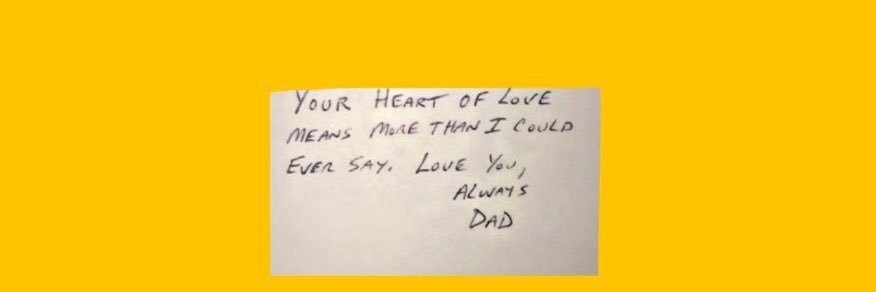 YOUR HEART OF LOVE
MEANS MORE THAN I COULD
EVER SAY. LOVE YOU,
ALWAYS
DAD